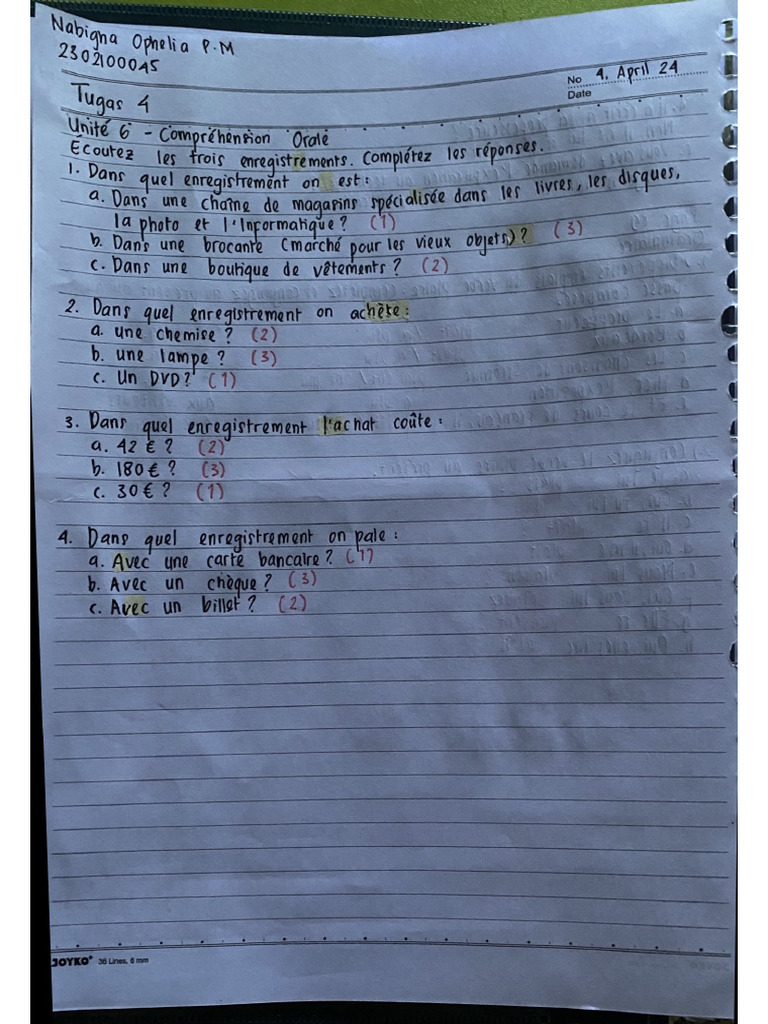 Nabigna Ophelia P.M
2302100045
No 4, April 24
Date
Tugas 4
Unité 6 - Compréhension Orale
Ecoutez les trois enregistrements. Complétez les réponses.
1. Dans quel enregistrement on est :
a. Dans une chaîne de magasins spécialisée dans les livres, les disques,
la photo et l'Informatique ? (1)
b. Dans une brocante (marché pour les vieux objets) ? (3)
c. Dans une boutique de vêtements ? (2)
2. Dans quel enregistrement on achète :
a. une chemise ? (2)
b. une lampe ? (3)
c. Un DVD ? (1)
3. Dans quel enregistrement l'achat coûte :
a. 42 € ? (2)
b. 180 € ? (3)
c. 30 € ? (1)
4. Dans quel enregistrement on paie :
a. Avec une carte bancaire ? (1)
b. Avec un chèque ? (3)
c. Avec un billet ? (2)
JOYKO 36 Lines, 6 mm